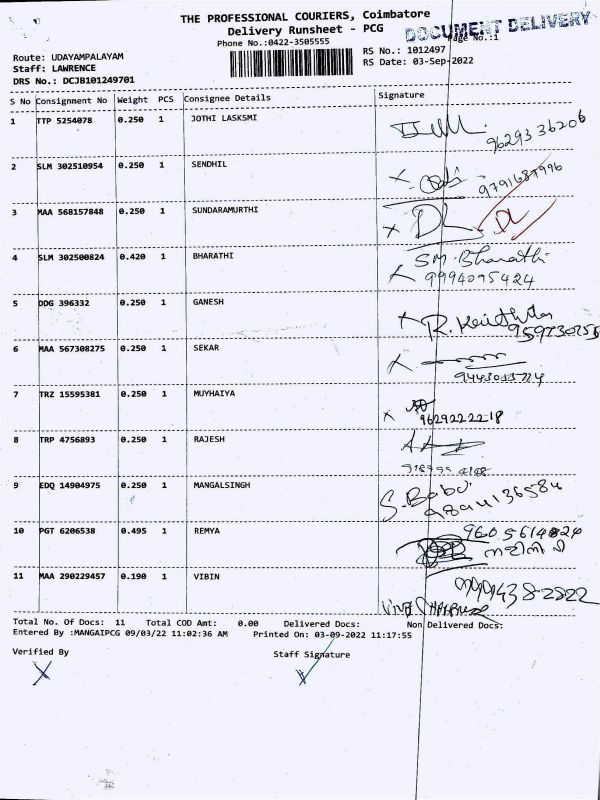 THE PROFESSIONAL COURIERS, Coimbatore
Delivery Runsheet - PCG
DOCUMENT DELIVERY
Phone No.:0422-3505555
Page No.:1
Route: UDAYAMPALAYAM
RS No.: 1012497
Staff: LAWRENCE
RS Date: 03-Sep-2022
DRS No.: DCJB101249701
S No Consignment No Weight PCS Consignee Details Signature
1 TTP 5254078 0.250 1 JOTHI LASKSMI
9629336206
2 SLM 302510954 0.250 1 SENDHIL
9791687996
3 MAA 568157848 0.250 1 SUNDARAMURTHI
DL DL
4 SLM 302500824 0.420 1 BHARATHI SM. Bharathi
9994095424
5 DDG 396332 0.250 1 GANESH
6 MAA 567308275 0.250 1 SEKAR
7 TRZ 15595381 0.250 1 MUYHAIYA
9629222218
8 TRP 4756893 0.250 1 RAJESH
9 EDQ 14904975 0.250 1 MANGALSINGH
S. Babu
10 PGT 6206538 0.495 1 REMYA
11 MAA 290229457 0.190 1 VIBIN
Total No. Of Docs: 11 Total COD Amt: 0.00 Delivered Docs: Non Delivered Docs:
Entered By :MANGAIPCG 09/03/22 11:02:36 AM Printed On: 03-09-2022 11:17:55
Verified By Staff Signature